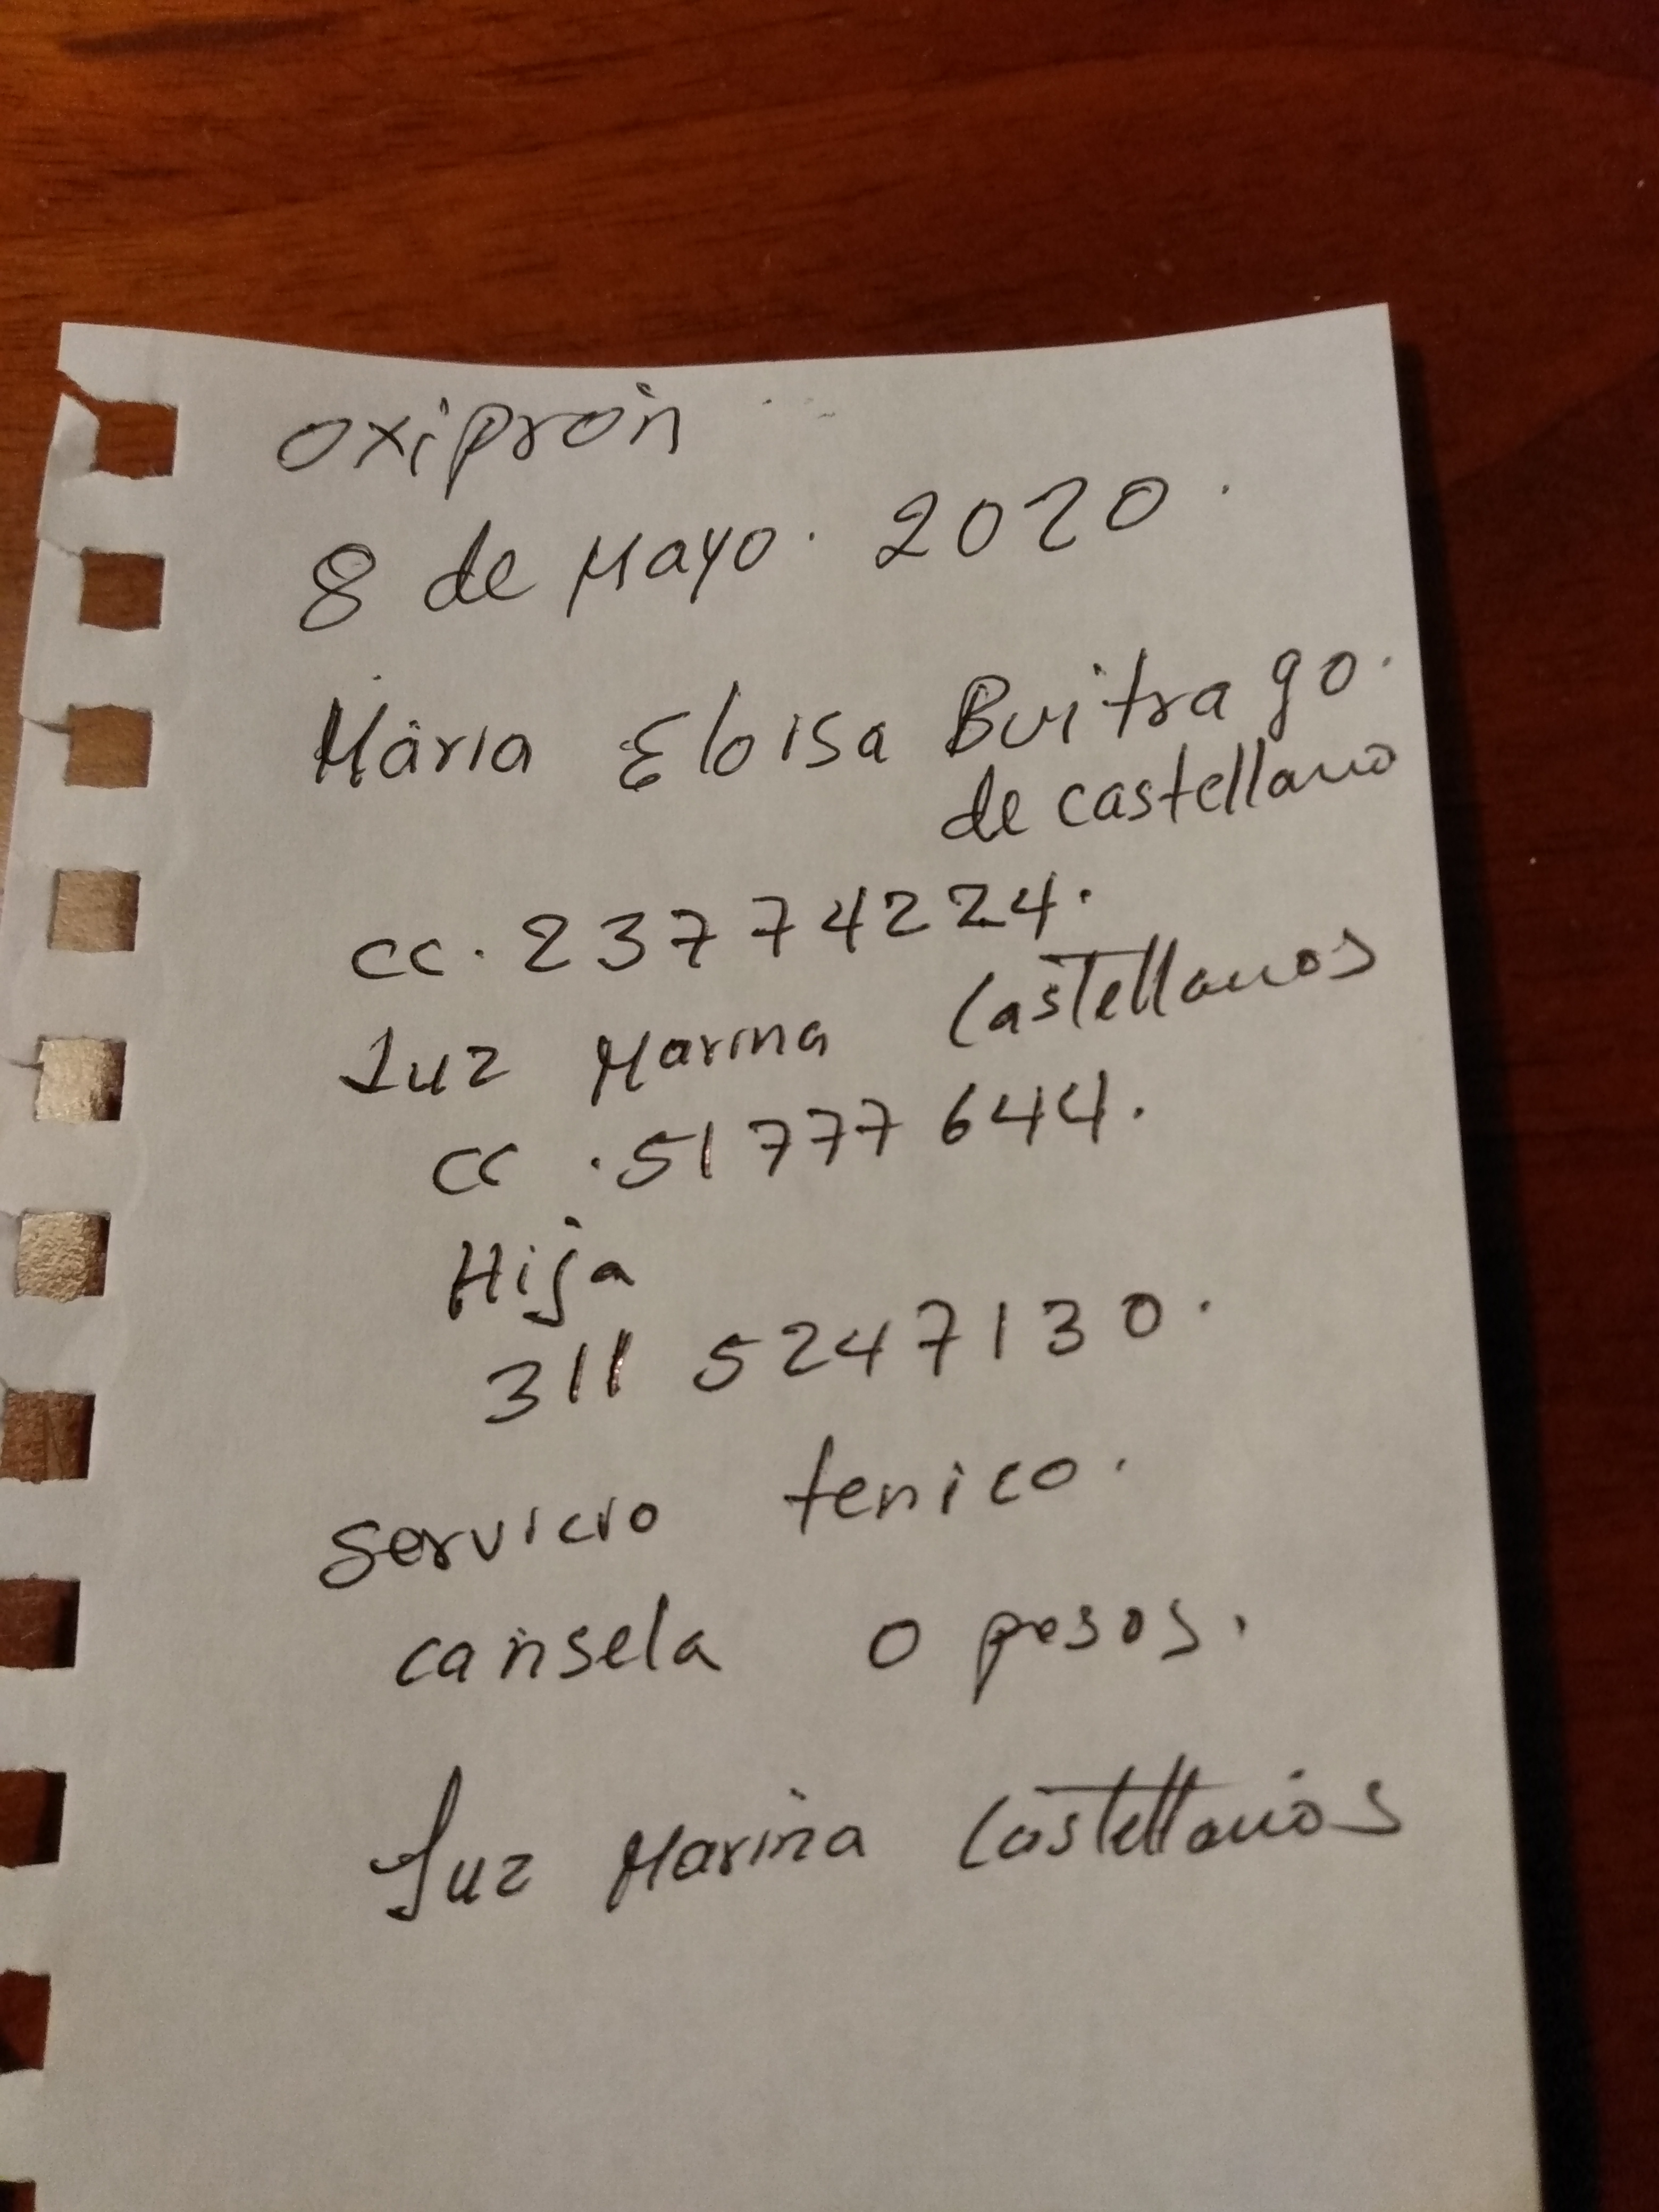 oxipron
8 de Mayo. 2020.
Maria Eloisa Buitrago.
de castellano
cc. 23774224.
Luz Marina Castellanos
cc .51777644.
Hija
311 5247130.
servicio tenico.
cansela 0 pesos.
Luz Marina Castellanos